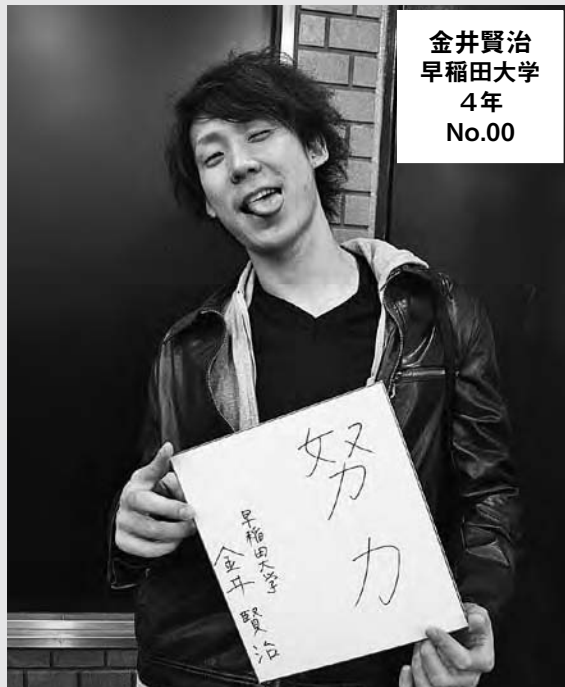 金井賢治
早稲田大学
４年
No.00
努力
早稲田大学
金井賢治